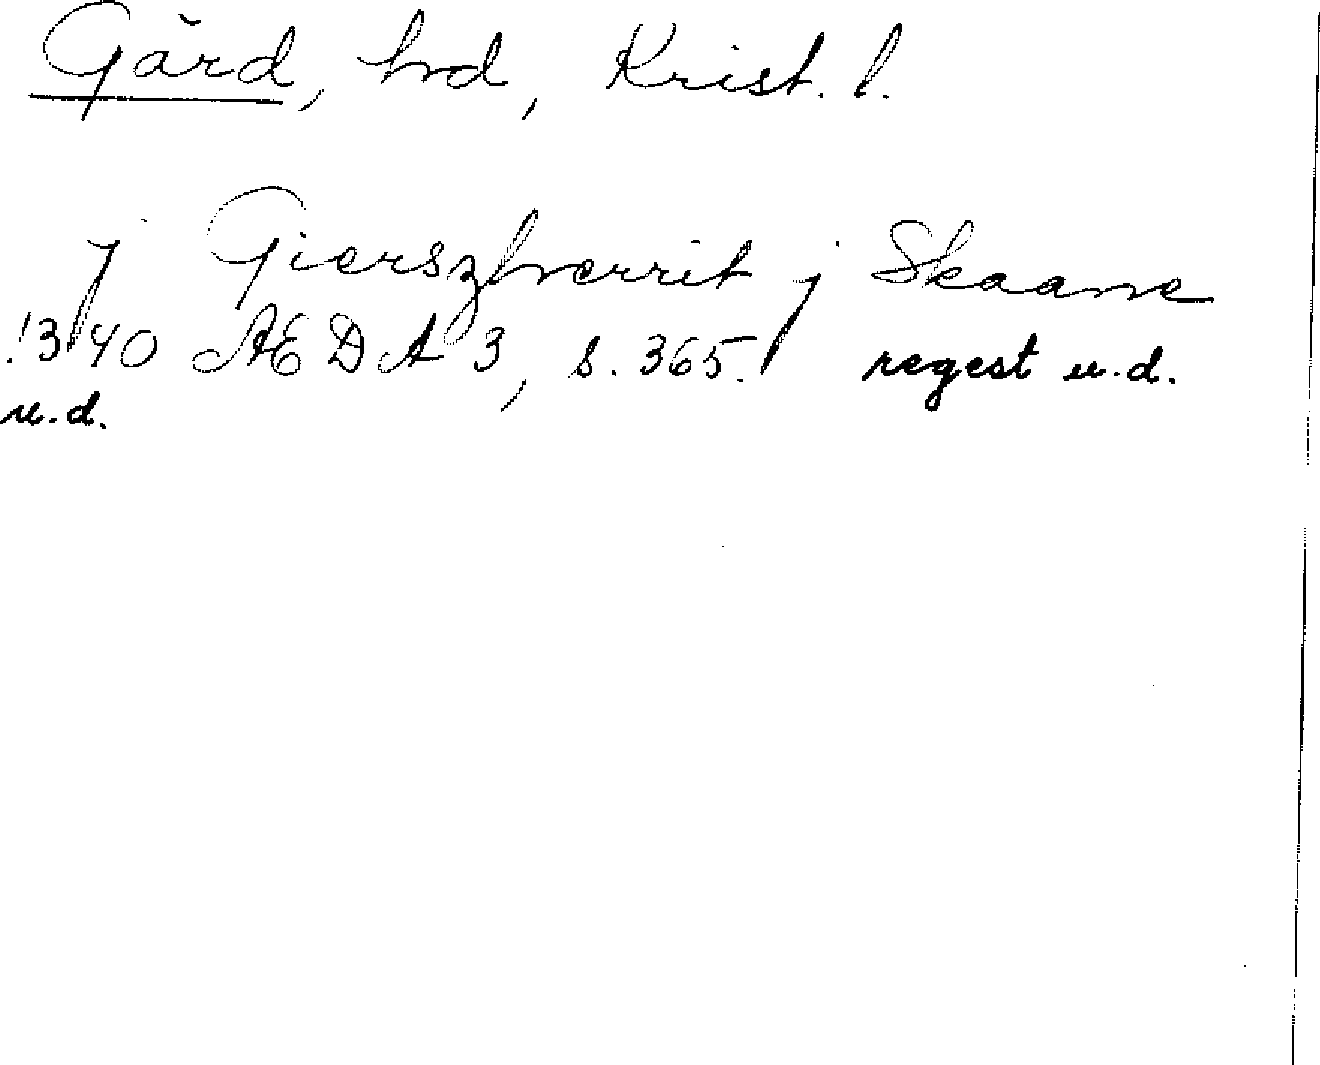 Gärd, hd, Krist. l.
j Gierszherrit j Skaane
1340 AEDA 3, s. 365. regest u.d.
u.d.